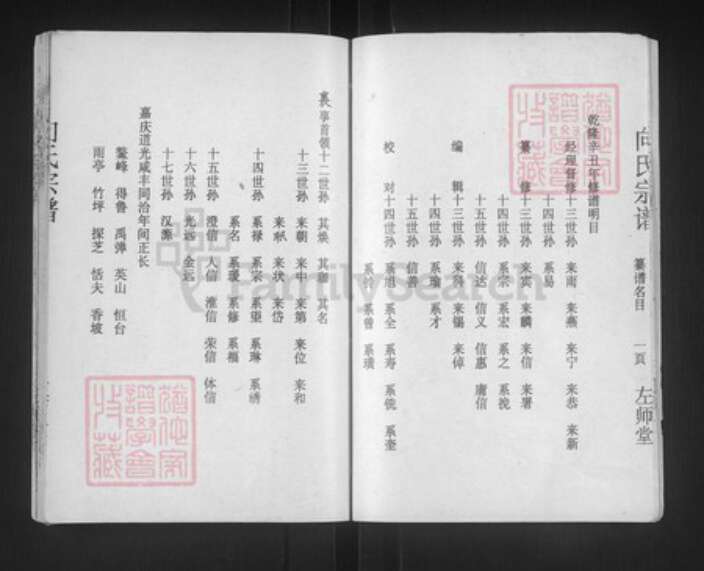 向氏宗谱 纂谱名目 一頁 左师堂
乾隆辛丑年修谱明目
经理督修十三世孙 来雨 来燕 来宁 来恭 来新
十四世孙 系易
纂修十三世孙 来宾 来麟 来信 来署
十四世孙 系宗 系宏 系之 系挽
十五世孙 信达 信义 信惠 庸信
编辑十三世孙 来科 来锡 来倬
十四世孙 系瑜 系才
十五世孙 信善
校对十四世孙 系旭 系全 系寿 系锐 系奎
系岭 系曾 系璜
襄事首领十二世孙 其焕 其御 其名
十三世孙 来朝 来中 来第 来位 来和
来献 来状 来岱
十四世孙 系禄 系宗 系望 系琳 系绣
系名 系瑗 系修 系福
十五世孙 澄信 人信 淮信 荣信 体信
十六世孙 光远 金远
十七世孙 汉藻
嘉庆道光咸丰同治年间正长
鳌峰 得鲁 禹弹 英山 恒台
雨亭 竹坪 探芝 恬夫 香坡
向氏宗谱
FamilySearch